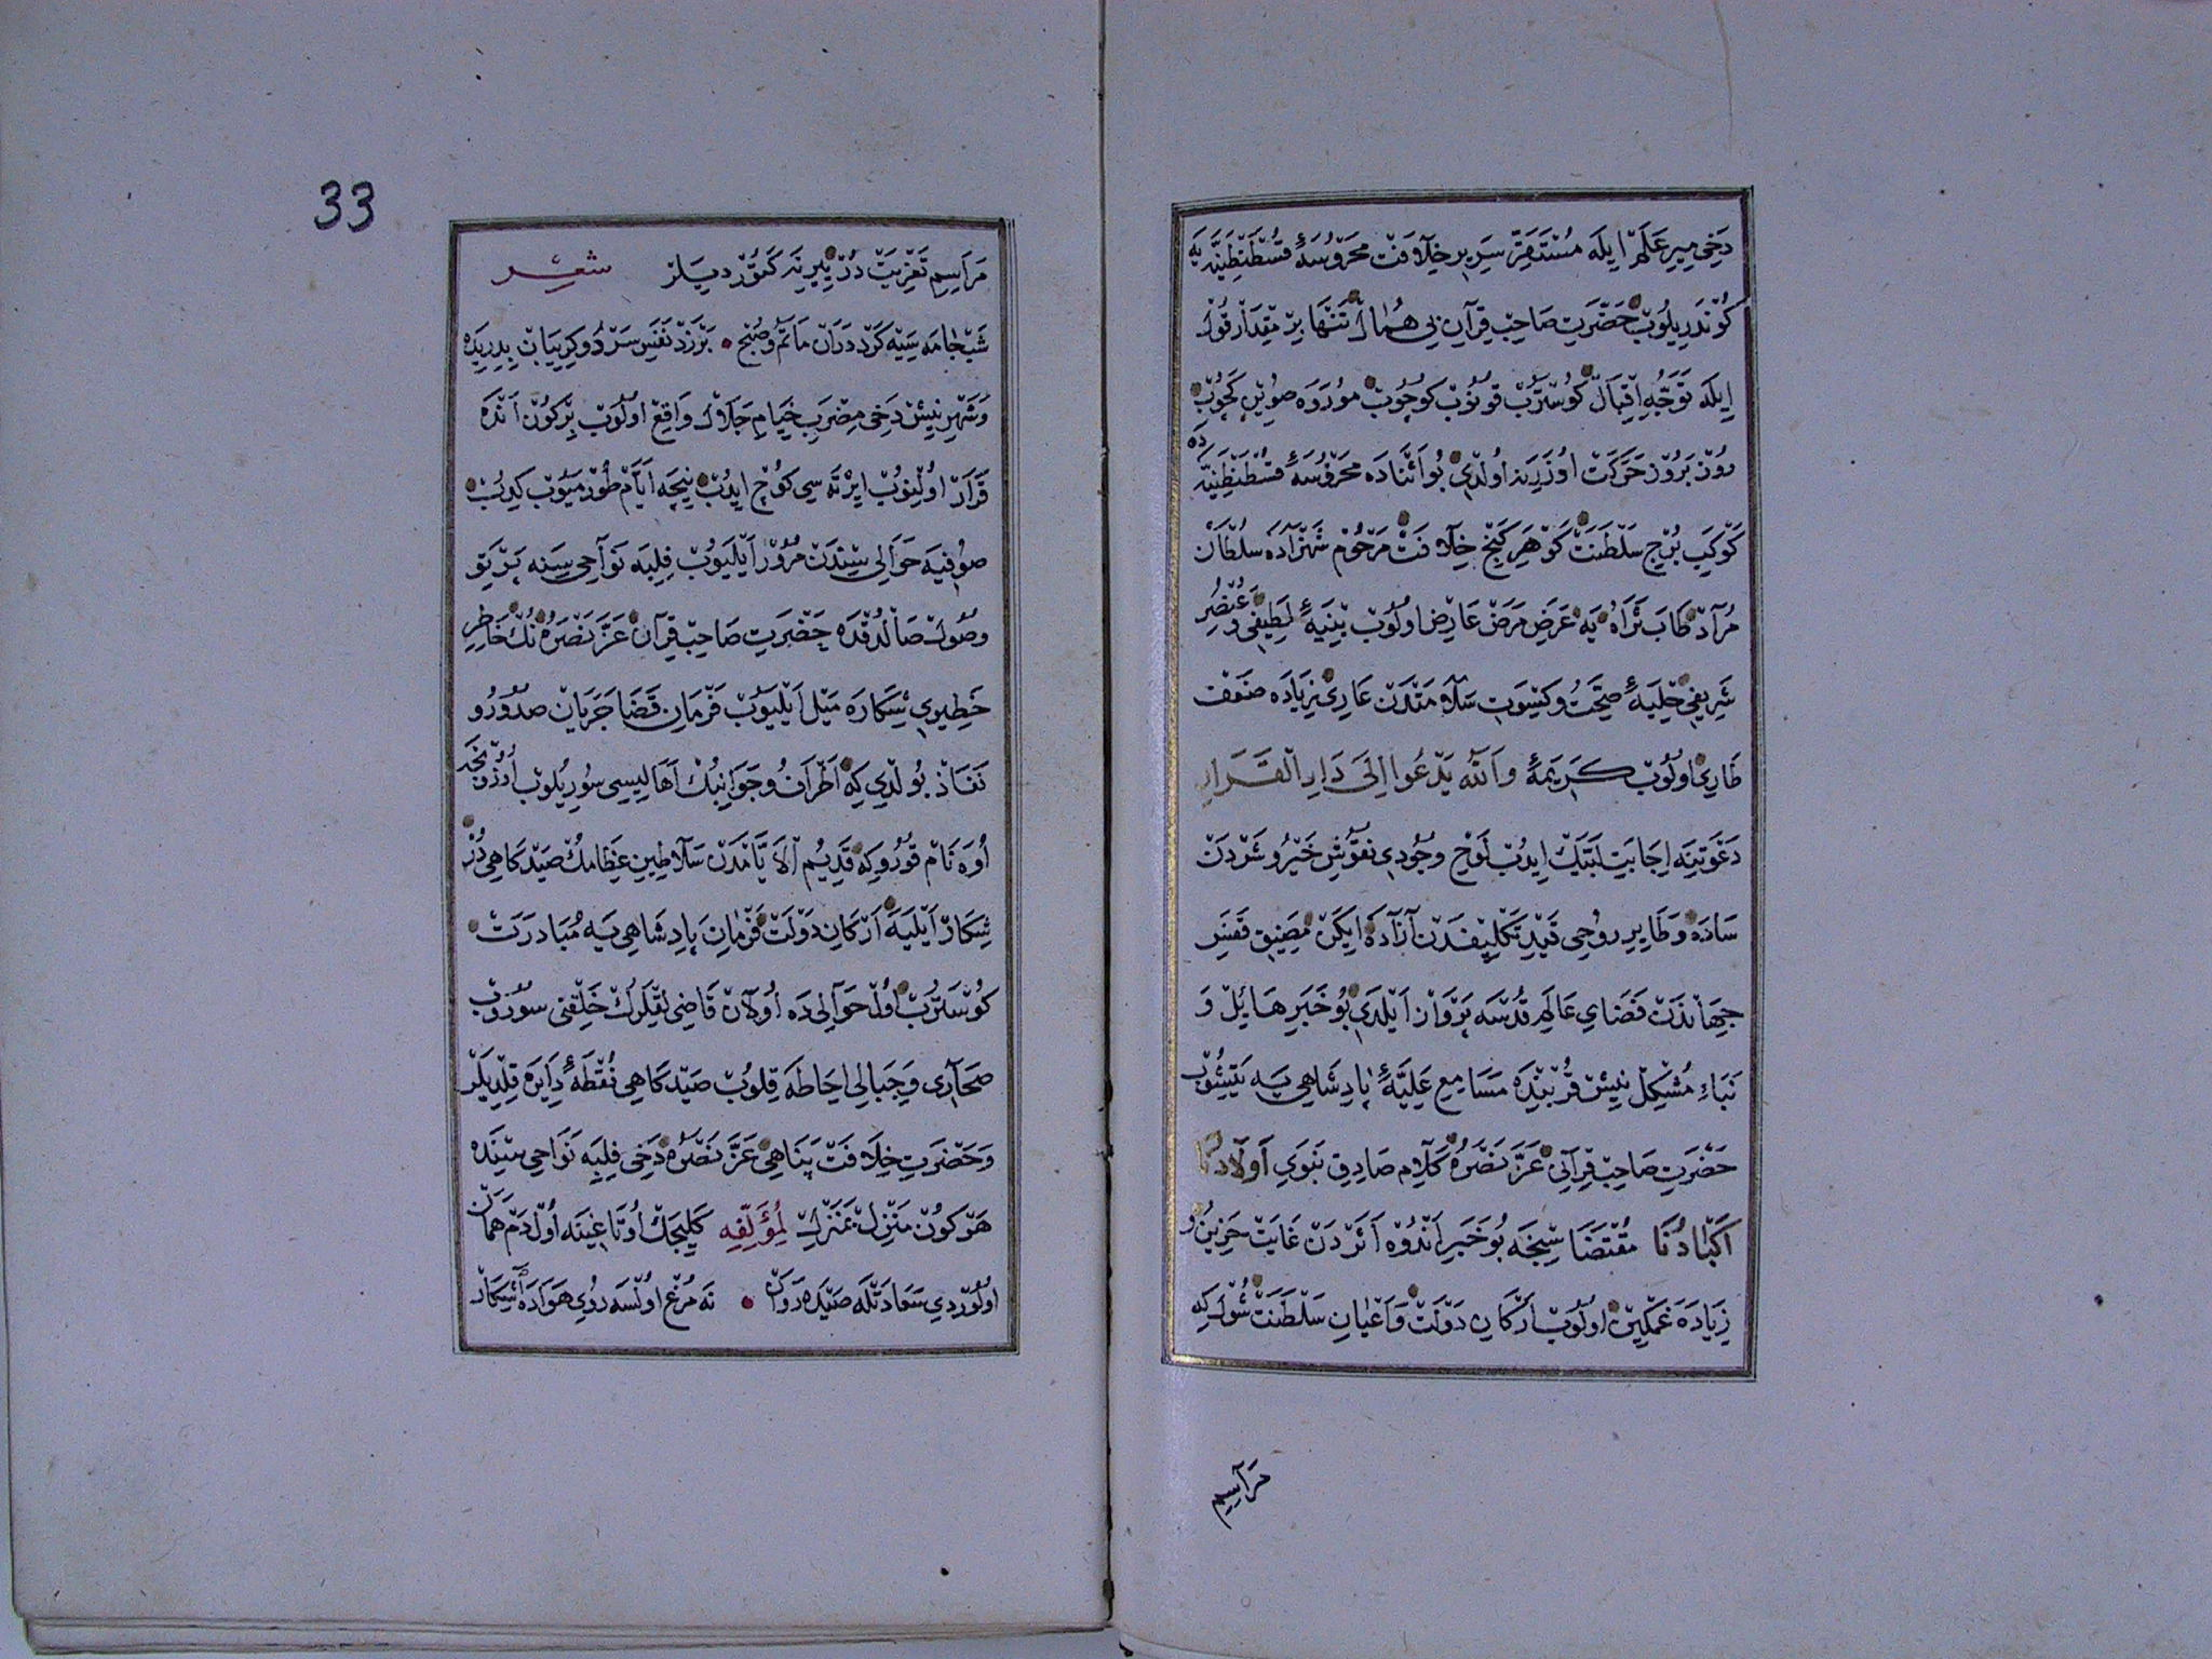 دَخِى مِيرِ عَلَمْ اِيلَه مُسْتَقَرِّ سَرِيرِ خِلَافَتْ مَحْرُوسَۀِ قُسْطَنْطِنِيَّه يَه
كُونْدَرِيلُوبْ حَضْرَتِ صَاحِبْ قِرَانِ بِى هُمَالْ تَنْهَا بِرْ مِقْدَارْ قُولْ
اِيلَه تَوَجُّهِ اِقْبَالْ كُوسْتَرُبْ قُونُوبْ كُوچُوبْ مُورَوَه صُويِنْ كَچُوبْ
رُوزْ بَرُوزْ حَرَكَتْ اُوزَرِينَه اُولْدِى بُو اَثْنَادَه مَحْرُوسَۀِ قُسْطَنْطِنِيَّه دَه
كَوْكَبِ بُرْجِ سَلْطَنَتْ گَوْهَرِ گَنْجِ خِلَافَتْ مَرْحُومْ شَهْزَادَه سُلْطَانْ
مُرَادْ طَابَ ثَرَاهُ يَه عَرَضِ مَرَضْ عَارِضْ اُولُوبْ بُنْيَۀِ لَطِيفِى وَعُنْصُرِ
شَرِيفِى حِلْيَۀِ صِحَّتْ وَكِسْوَتِ سَلَامَتْدَنْ عَارِى زِيَادَه ضَعْفْ
طَارِى اُولُوبْ كَرِيمَۀِ وَاللّٰه يَدْعُوا اِلَى دَارِ الْقَرَارِ
دَعْوَتِينَه اِجَابَتِ لَبَّيْكْ اِيدُبْ لَوْحِ وُجُودِى نُقُوشِ خَيْرُ وشَرْدَنْ
سَادَه وَطَايِرِ رُوحِى قَيْدِ تَكْلِيفْدَنْ آزَادَه اِيكَنْ مَضِيقِ قَفَسِ
جِهَانْدَنْ فَضَاىِ عَالَمِ قُدْسَه پَرْوَازْ اَيْلَدِى بُو خَبَرِ هَائِلْ وَ
نَبَاءِ مُشْكِلْ نِيشْ قُرْبِنْدَه مَسَامِعِ عَلِيَّۀِ پَادِشَاهِى يَه يَتِيشُوبْ
حَضْرَتِ صَاحِبْ قِرَانِى عَزَّ نَصْرُهُ كَلَامِ صَادِقِ نَبَوِى اَوْلَادُنَا
اَكْبَادُنَا مُقْتَضَاسِنْجَه بُو خَبَرِ اَنْدُوه اَثَرْدَنْ غَايَتْ حَزِينُ و
زِيَادَه غَمْكِينْ اُولُوبْ اَرْكَانِ دَوْلَتْ وَاَعْيَانِ سَلْطَنَتْ شُولْ كِه
مَرَاسِمِ
33
مَرَاسِمِ تَعْزِيَتْ دُرْ يِيرِينَه كَتُورْدِيلَرْ شعر
شَبْ جَامَه سِيَه كَرْد دَرَانْ مَاتَمْ وَصُبْحْ • بَرْزَدْ نَفَسِ سَرْدُ وكِرِيبَانْ بِدِرِيدَه
وَشَهْرِ نِيشْ دَخِى مِضْرَبِ خِيَامِ جَلَالْ وَاقِعْ اُولُوبْ بِرْ كُونْ اَنْدَه
قَرَارْ اُولِنُوبْ اِيرْتَه سِى كُوچْ اِيدُبْ نِيچَه اَيَّامْ طُورْمَيُوبْ كِيدُبْ
صُوفِيَه حَوَالِى سِنْدَنْ مُرُورْ اَيْلَيُوبْ فِلِبَه نَوَاحِى سِنَه پَرْتَوِ
وُصُولْ صَالْدُقْدَه حَضْرَتِ صَاحِبْ قِرَانْ عَزَّ نَصْرُهُ نُكْ خَاطِرِ
خَطِيرِى شِكَارَه مَيْلْ اَيْلَيُوبْ فَرْمَانِ قَضَا جَرَيَانْ صُدُورُ و
نَفَاذْ بُولْدِى كِه اَطْرَافُ وجَوَانِبُكْ اَهَالِيسِى سُورِيلُوبْ اُوزُنْجَه
اُوَه نَامْ قُورُو كِه قَدِيمُ الْاَيَّامْدَنْ سَلَاطِينِ عِظَامُكْ صَيْدگَاهِى دُرْ
شِكَارْ اَيْلَيَه اَرْكَانِ دَوْلَتْ فَرْمَانِ پَادِشَاهِى يَه مُبَادَرَتْ
كُوسْتَرُبْ اُولْ حَوَالِى دَه اُولَانْ قَاضِى لِقْلَرُكْ خَلْقِنِى سُورُوبْ
صَحَارِى وَجِبَالِى اِحَاطَه قِلُوبْ صَيْدگَاهِى نُقْطَۀِ دَايِرَه قِلْدِيلَرْ
وَحَضْرَتِ خِلَافَتْ پَنَاهِى عَزَّ نَصْرُهُ دَخِى فِلِبَه نَوَاحِى سِنْدَه
هَرْ كُونْ مَنْزِلْ بَمَنْزِلْ لِمُؤَلِّفِه كَلِيجَكْ اُوتَاغِينَه اُولْ دَمْ هَمَانْ
اُولُورْدِى سَعَادَتْلَه صَيْدَه رَوَانْ • نَه مُرْغْ اُولْسَه رُوىِ هَوَادَه آشِكَارْ